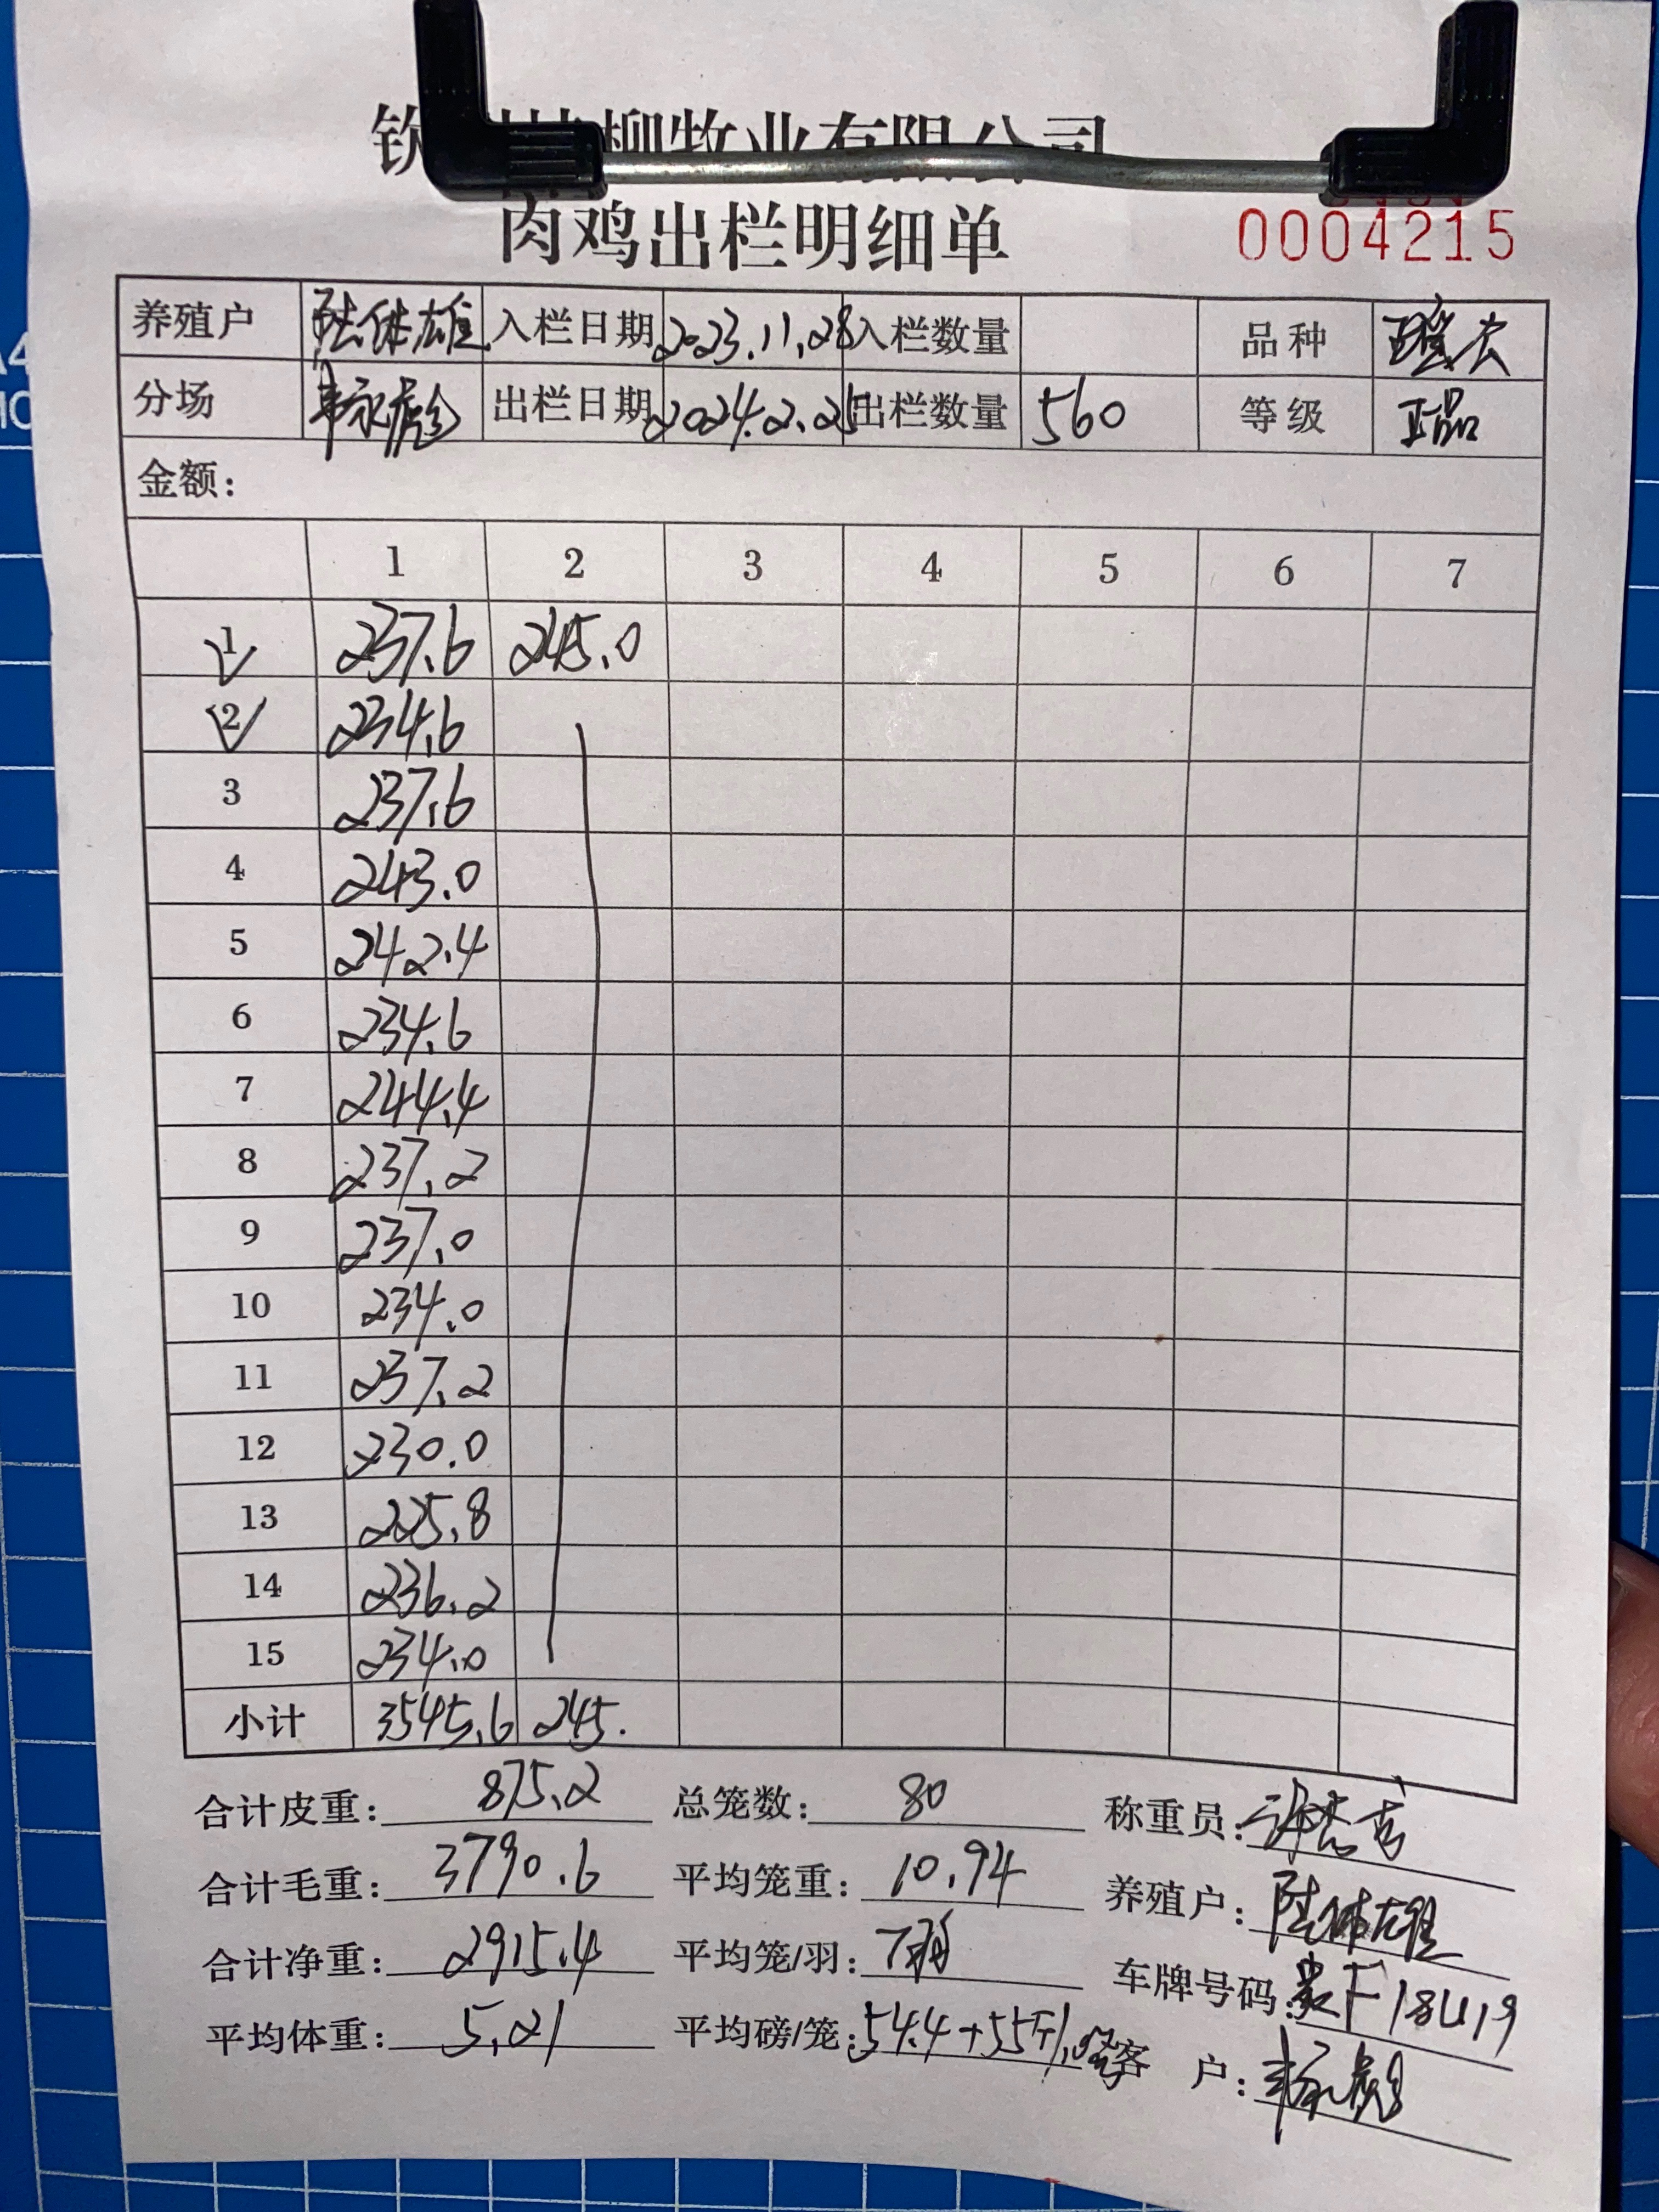 柳牧业有限公司
肉鸡出栏明细单 0004215
养殖户 入栏日期 2023.11.28 入栏数量 品种
分场 出栏日期 2024.2.25 出栏数量 560 等级 正品
金额:
1 2 3 4 5 6 7
1 237.6 245.0
2 234.6
3 237.6
4 243.0
5 242.4
6 234.6
7 244.4
8 237.2
9 237.0
10 234.0
11 237.2
12 230.0
13 225.8
14 236.2
15 234.0
小计 3545.6 245.
合计皮重: 875.2 总笼数: 80 称重员:
合计毛重: 3790.6 平均笼重: 10.94 养殖户:
合计净重: 2915.4 平均笼/羽: 7 车牌号码: F18U19
平均体重: 5.21 平均磅/笼: 54.4+55 客 户: